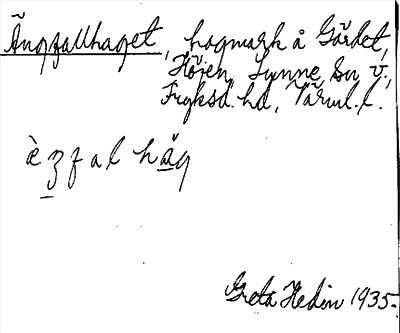 Ängfallhaget, hagmark å Gärdet,
Höjen, Lysne, Sn v.,
Fryksd. hd, Värml. l.
è ʒ f a l h å g
Greta Hedin 1935.